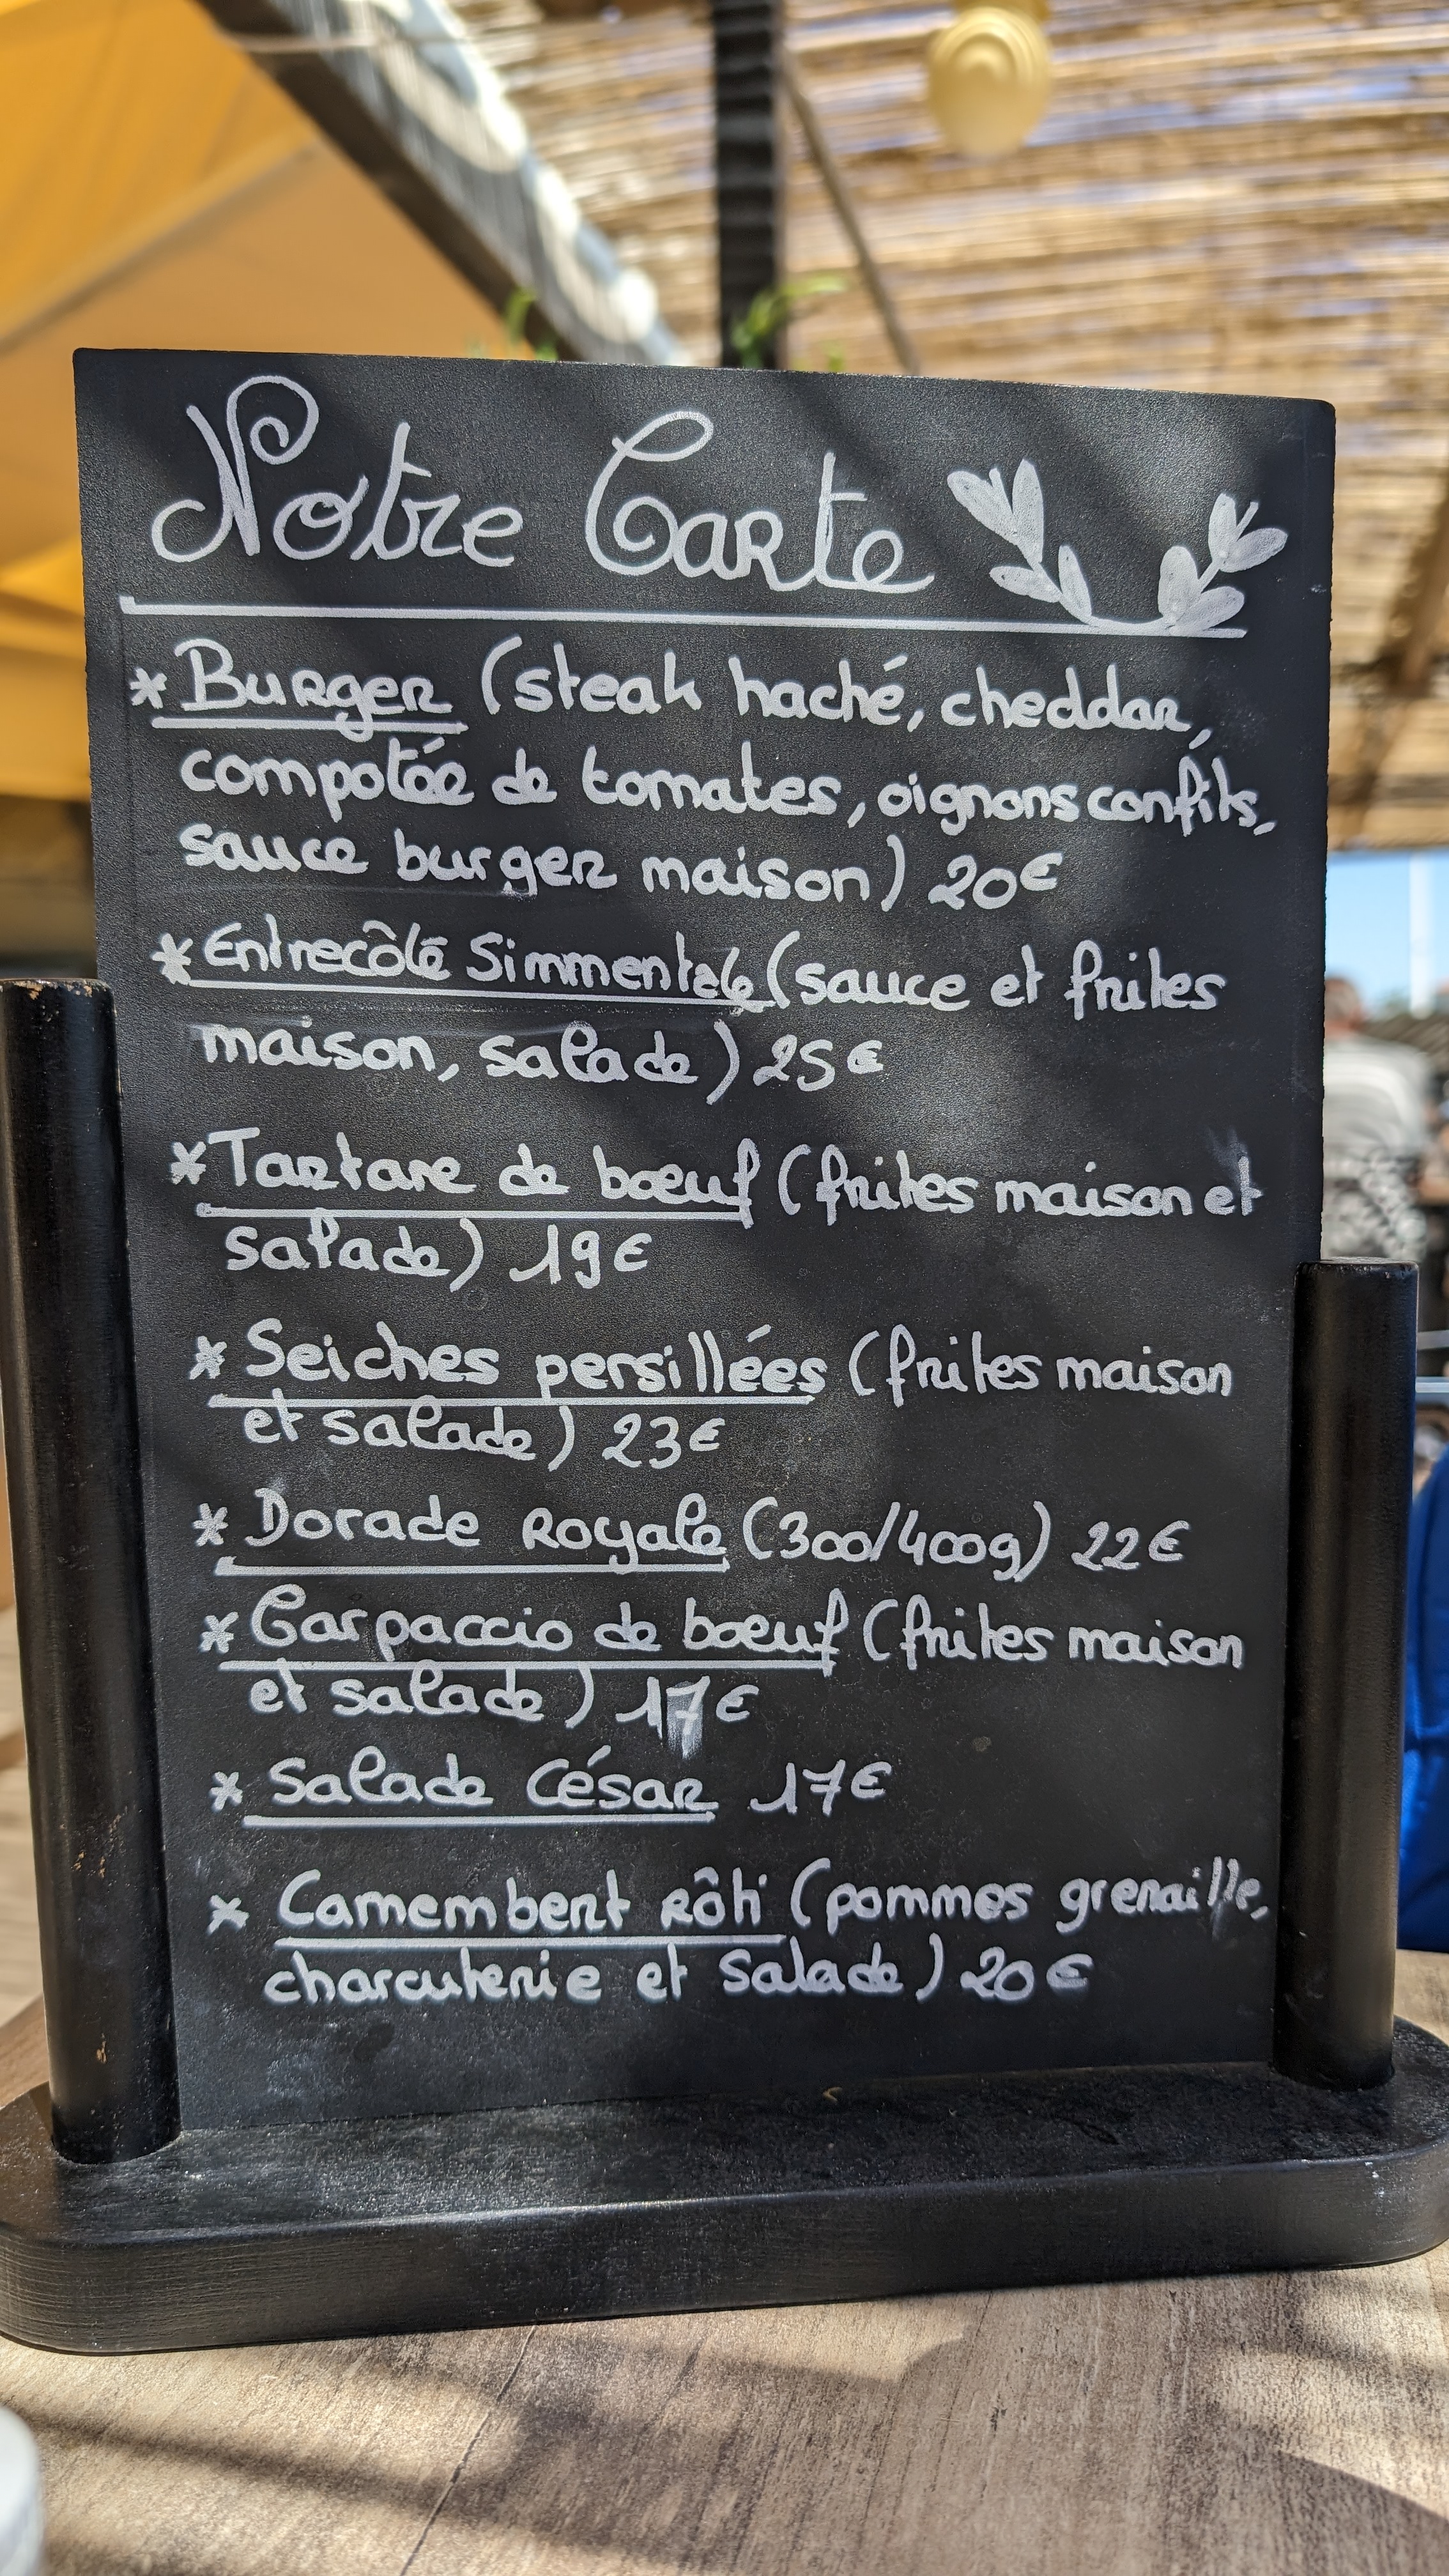 Notre Carte
* Burger (steak haché, cheddar,
compotée de tomates, oignons confits,
sauce burger maison) 20€
* Entrecôte Simmentale (sauce et frites
maison, salade) 25€
* Tartare de bœuf (frites maison et
salade) 19€
* Seiches persillées (frites maison
et salade) 23€
* Dorade Royale (300/400g) 22€
* Carpaccio de bœuf (frites maison
et salade) 17€
* Salade César 17€
* Camembert rôti (pommes grenaille,
charcuterie et salade) 20€